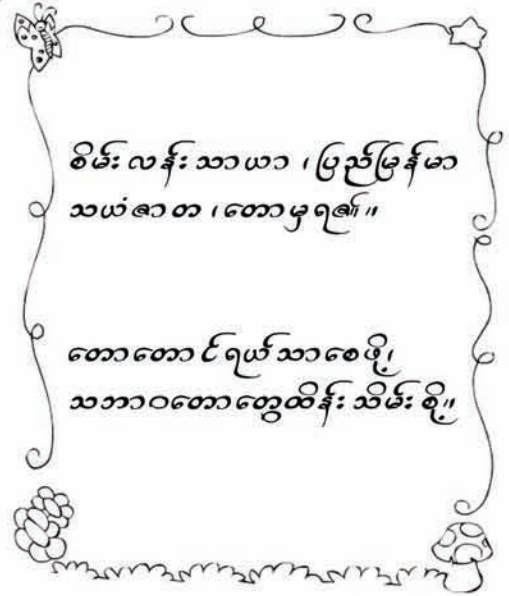 စိမ်းလန်းသာယာ ၊ ပြည်မြန်မာ
သယံဇာတ ၊ တောမှရ၏ ။
တောတောင်ရယ်သာစေဖို့၊
သဘာဝတောတွေထိန်းသိမ်းစို့။